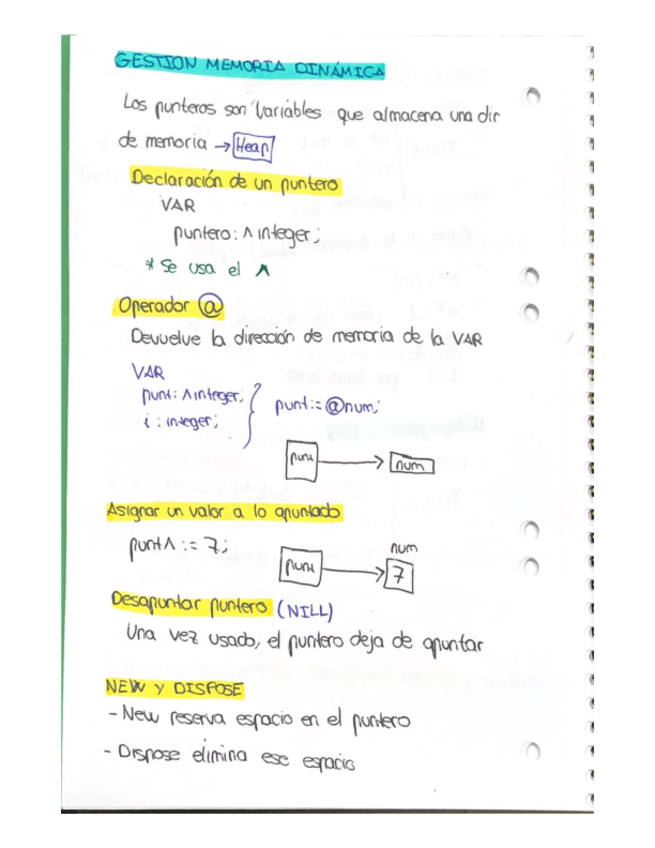 GESTION MEMORIA DINÁMICA
Los punteros son variables que almacena una dir
de memoria → Heap
Declaración de un puntero
VAR
puntero: ^ integer;
* Se usa el ^
Operador @
Devuelve la dirección de memoria de la VAR
VAR
punt: ^integer;
i: integer;
punt:= @num;
punt → num
Asignar un valor a lo apuntado
punt^ := 7;
num
punt → 7
Desapuntar puntero (NILL)
Una vez usado, el puntero deja de apuntar
NEW y DISPOSE
- New reserva espacio en el puntero
- Dispose elimina ese espacio